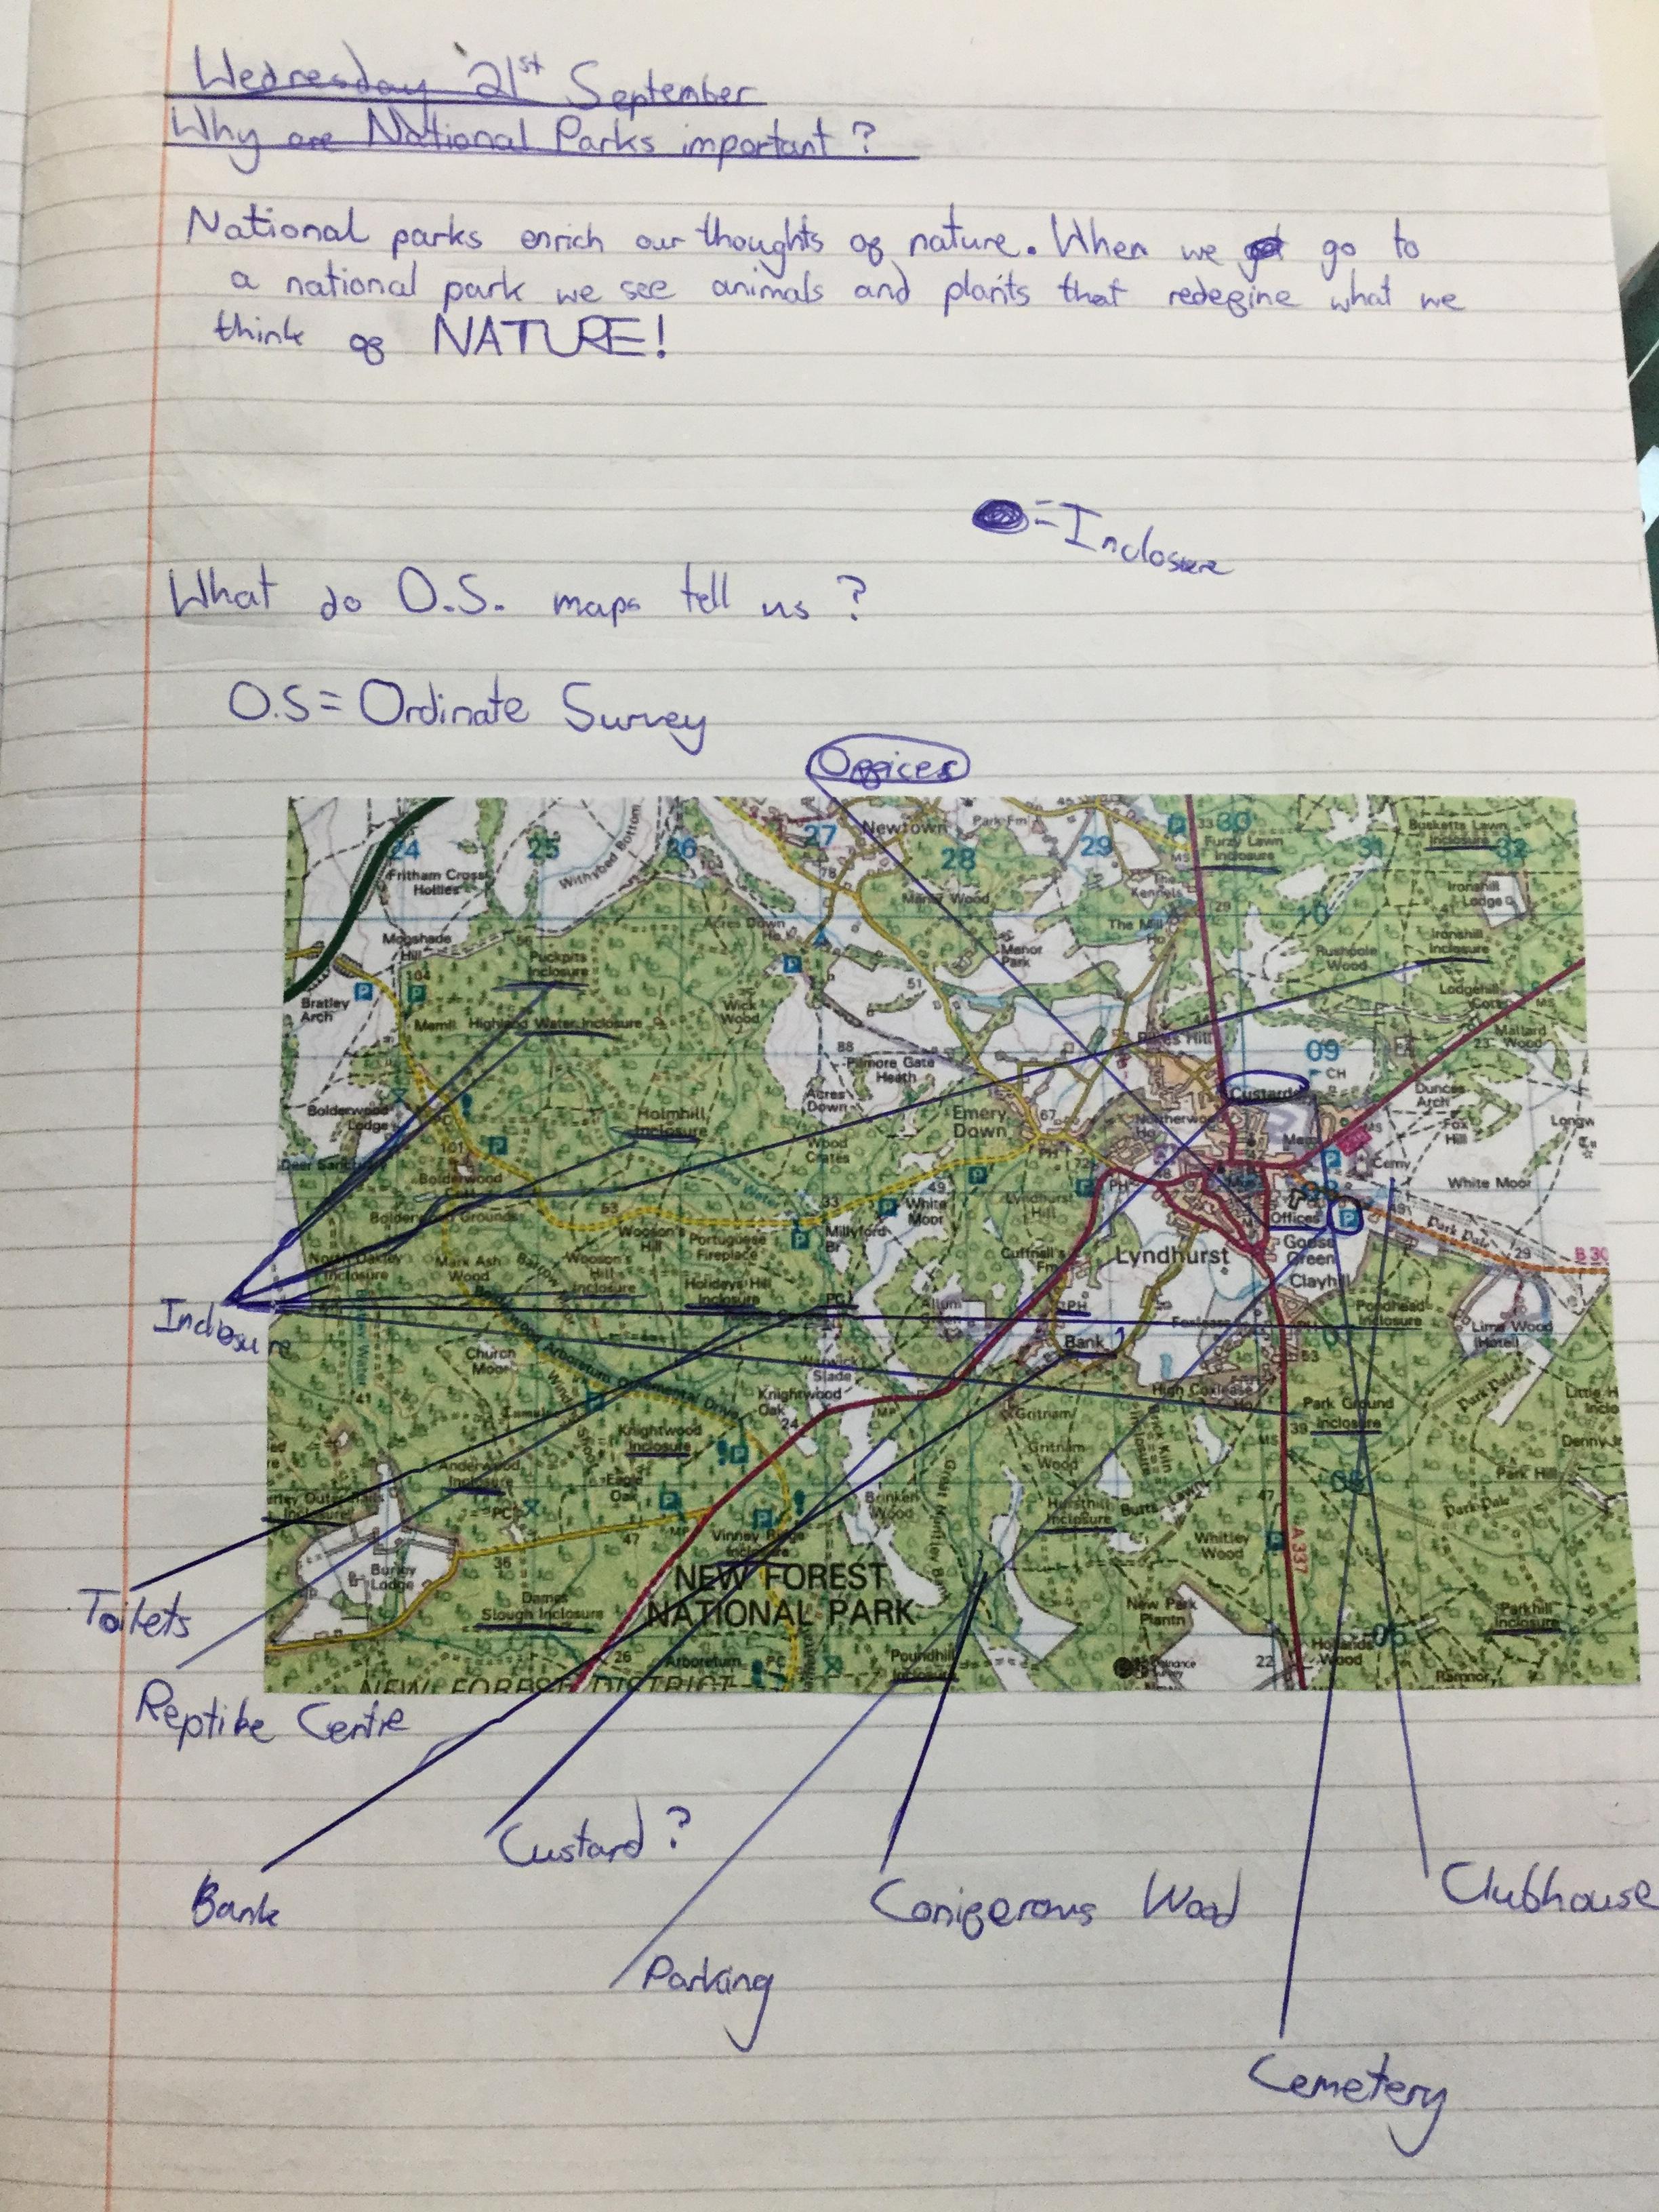 Wednesday 21st September
Why are National Parks important?
National parks enrich our thoughts of nature. When we go to
a national park we see animals and plants that redefine what we
think of NATURE!
= Inclosure
What do O.S. maps tell us?
O.S = Ordinate Survey
Offices
24 25 26 27 28 29 30 31 32
Newtown
Park Fm
Furzy Lawn
Inclosure
Busketts Lawn
Inclosure
Fritham Cross
Hollies
Withybed Bottom
The
Kennels
Ironshill
Lodge
Manor Wood
Acres Down
Ho
The Mill
Ho
Mogshade
Hill
Puckpits
Inclosure
Manor
Park
Rushpole
Wood
Ironshill
Inclosure
Bratley
Arch
Meml
Highland Water Inclosure
Wick
Wood
51
Lodgehill
Cotts
MS
Maltard
Wood
Pikes Hill
09
CH
88
Pilmore Gate
Heath
Acres
Down
Bolderwood
Lodge
Holmhill
Inclosure
Emery
Down
67
Custards
Dunces
Arch
Fox
Hill
Longw
101
Wood
Crates
PH
Mus
Cemy
White Moor
Deer Sanctuary
Bolderwood
Cott
Highland Water
49
White
Moor
Lyndhurst
Hill
PH
Offices
Park Pale
29
Bolderwood Grounds
53
Wooson's
Hill
Portuguese
Fireplace
33
Millyford
Br
Cuffnell's
Fm
Lyndhurst
Goose
Green
B 30
North Oakley
Inclosure
Mark Ash
Wood
Wooson's
Hill
Inclosure
Holidays Hill
Inclosure
PC
Allum
Green
PH
Clayhill
Pondhead
Inclosure
Lime Wood
(Hotel)
Inclosure
Bank
Foxlease
Church
Moor
Bolderwood Arboretum Ornamental Drive
Warwick
Slade
53
41
Knightwood
Oak
24
MP
High Coxlease
Ho
Park Ground
Inclosure
39
Park Pale
Knightwood
Inclosure
Gritnam
Gritnam
Wood
MS
Denny
Anderwood
Inclosure
Eagle
Oak
Brinken
Wood
Hursthill
Inclosure
Butts Lawn
Park Hill
47
Park Pale
PC
47
MP
Vinney Ridge
Inclosure
Whitley
Wood
A 337
36
Burley
Lodge
Dames
Slough Inclosure
NEW FOREST
NATIONAL PARK
New Park
Plantn
Parkhill
Inclosure
26
Arboretum
PC
Poundhill
Inclosure
22
Hollands
Wood
Ramnor
NEW FOREST DISTRICT
Toilets
Reptike Centre
Custard?
Bank
Coniferous Wood
Clubhouse
Parking
Cemetery